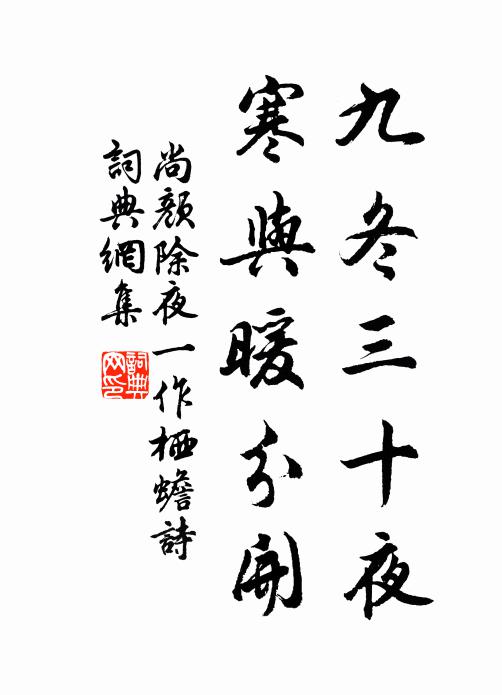 九冬三十夜
寒與暖分開
尚顏除夜一作栖蟾詩
詞典網集
詞典
网印